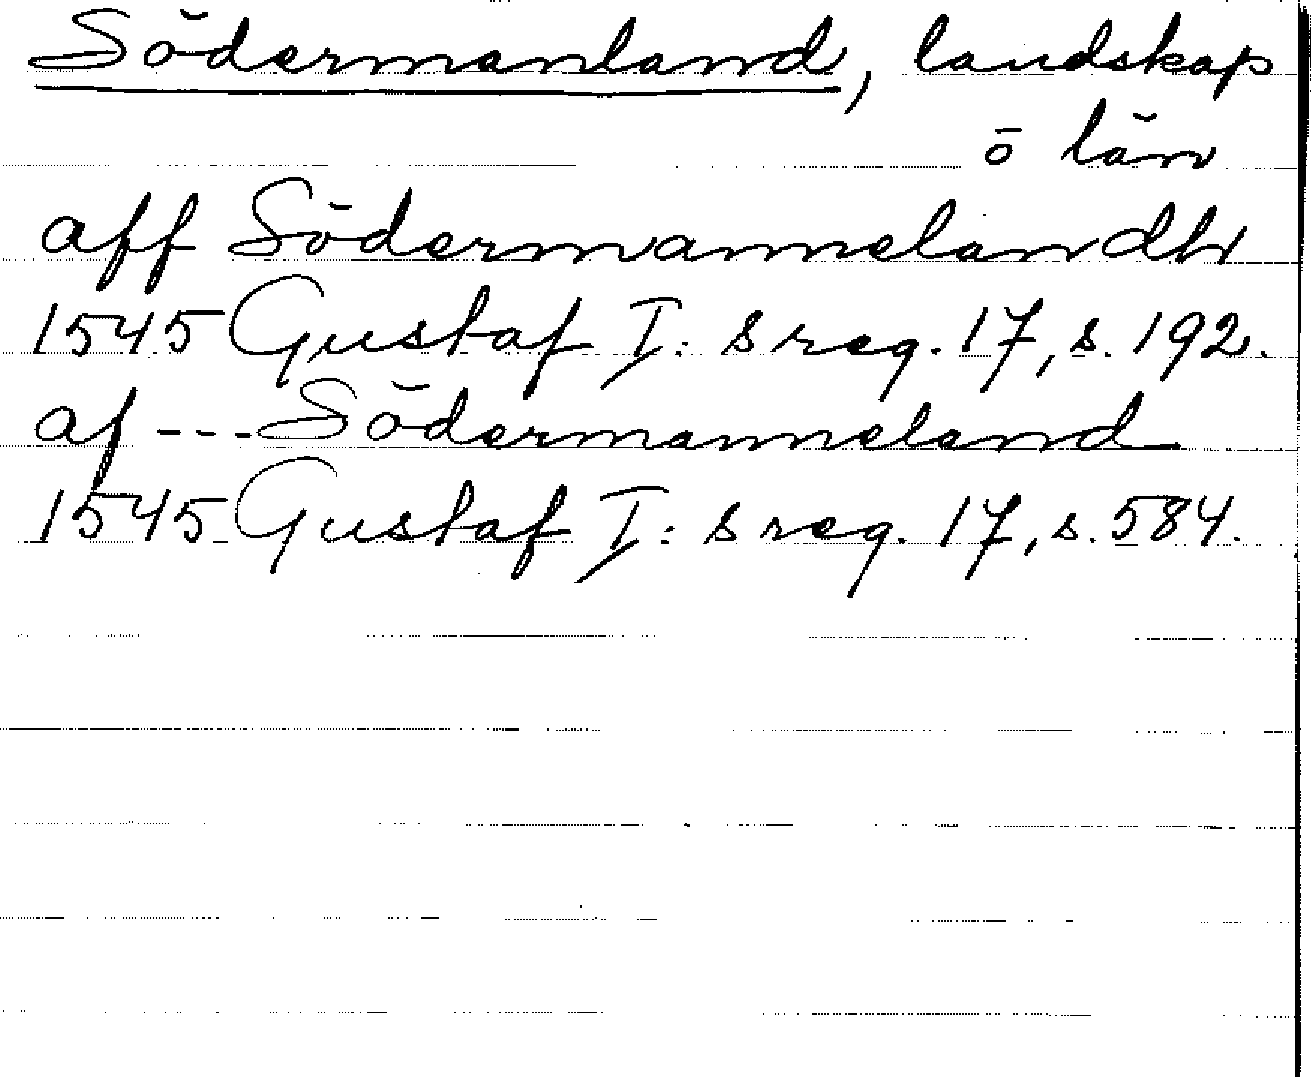 Södermanland, landskap
o län
aff Södermannelandh
1545 Gustaf I:s reg. 17, s. 192.
af --- Södermanneland
1545 Gustaf I:s reg. 17, s. 584.